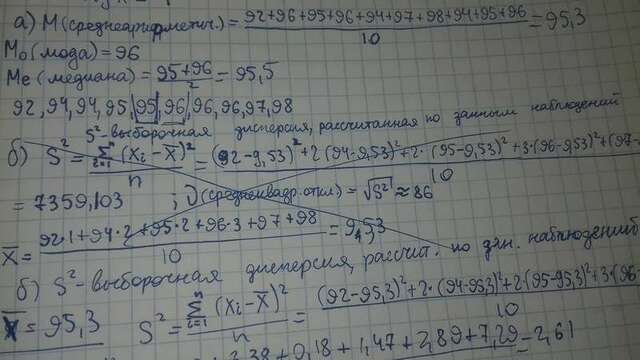 а) M (среднеарифметич.) = 92+96+95+96+94+97+98+94+95+96 / 10 = 95,3
Mo (мода) = 96
Me (медиана) = 95+96 / 2 = 95,5
92, 94, 94, 95, 95, 96, 96, 96, 97, 98
S²-выборочная дисперсия, рассчитанная по данным наблюдений
б) S² = Σ i=1 n (Xi - X̄)² / n = (92-9,53)² + 2(94-9,53)² + 2·(95-9,53)² + 3·(96-9,53)² + (97- / 10
= 7359,103 ; (среднеквадр. откл) = √S² ≈ 86
X̄ = 92·1+94·2+95·2+96·3+97+98 / 10 = 9,53
б) S²-выборочная дисперсия, рассчит. по дан. наблюдений
X̄ = 95,3 S² = Σ i=1 n (Xi - X̄)² / n = (92-95,3)² + 2·(94-95,3)² + 2·(95-95,3)² + 3·(96 / 10
+ 0,18 + 1,47 + 2,89 + 7,29 = 2,61